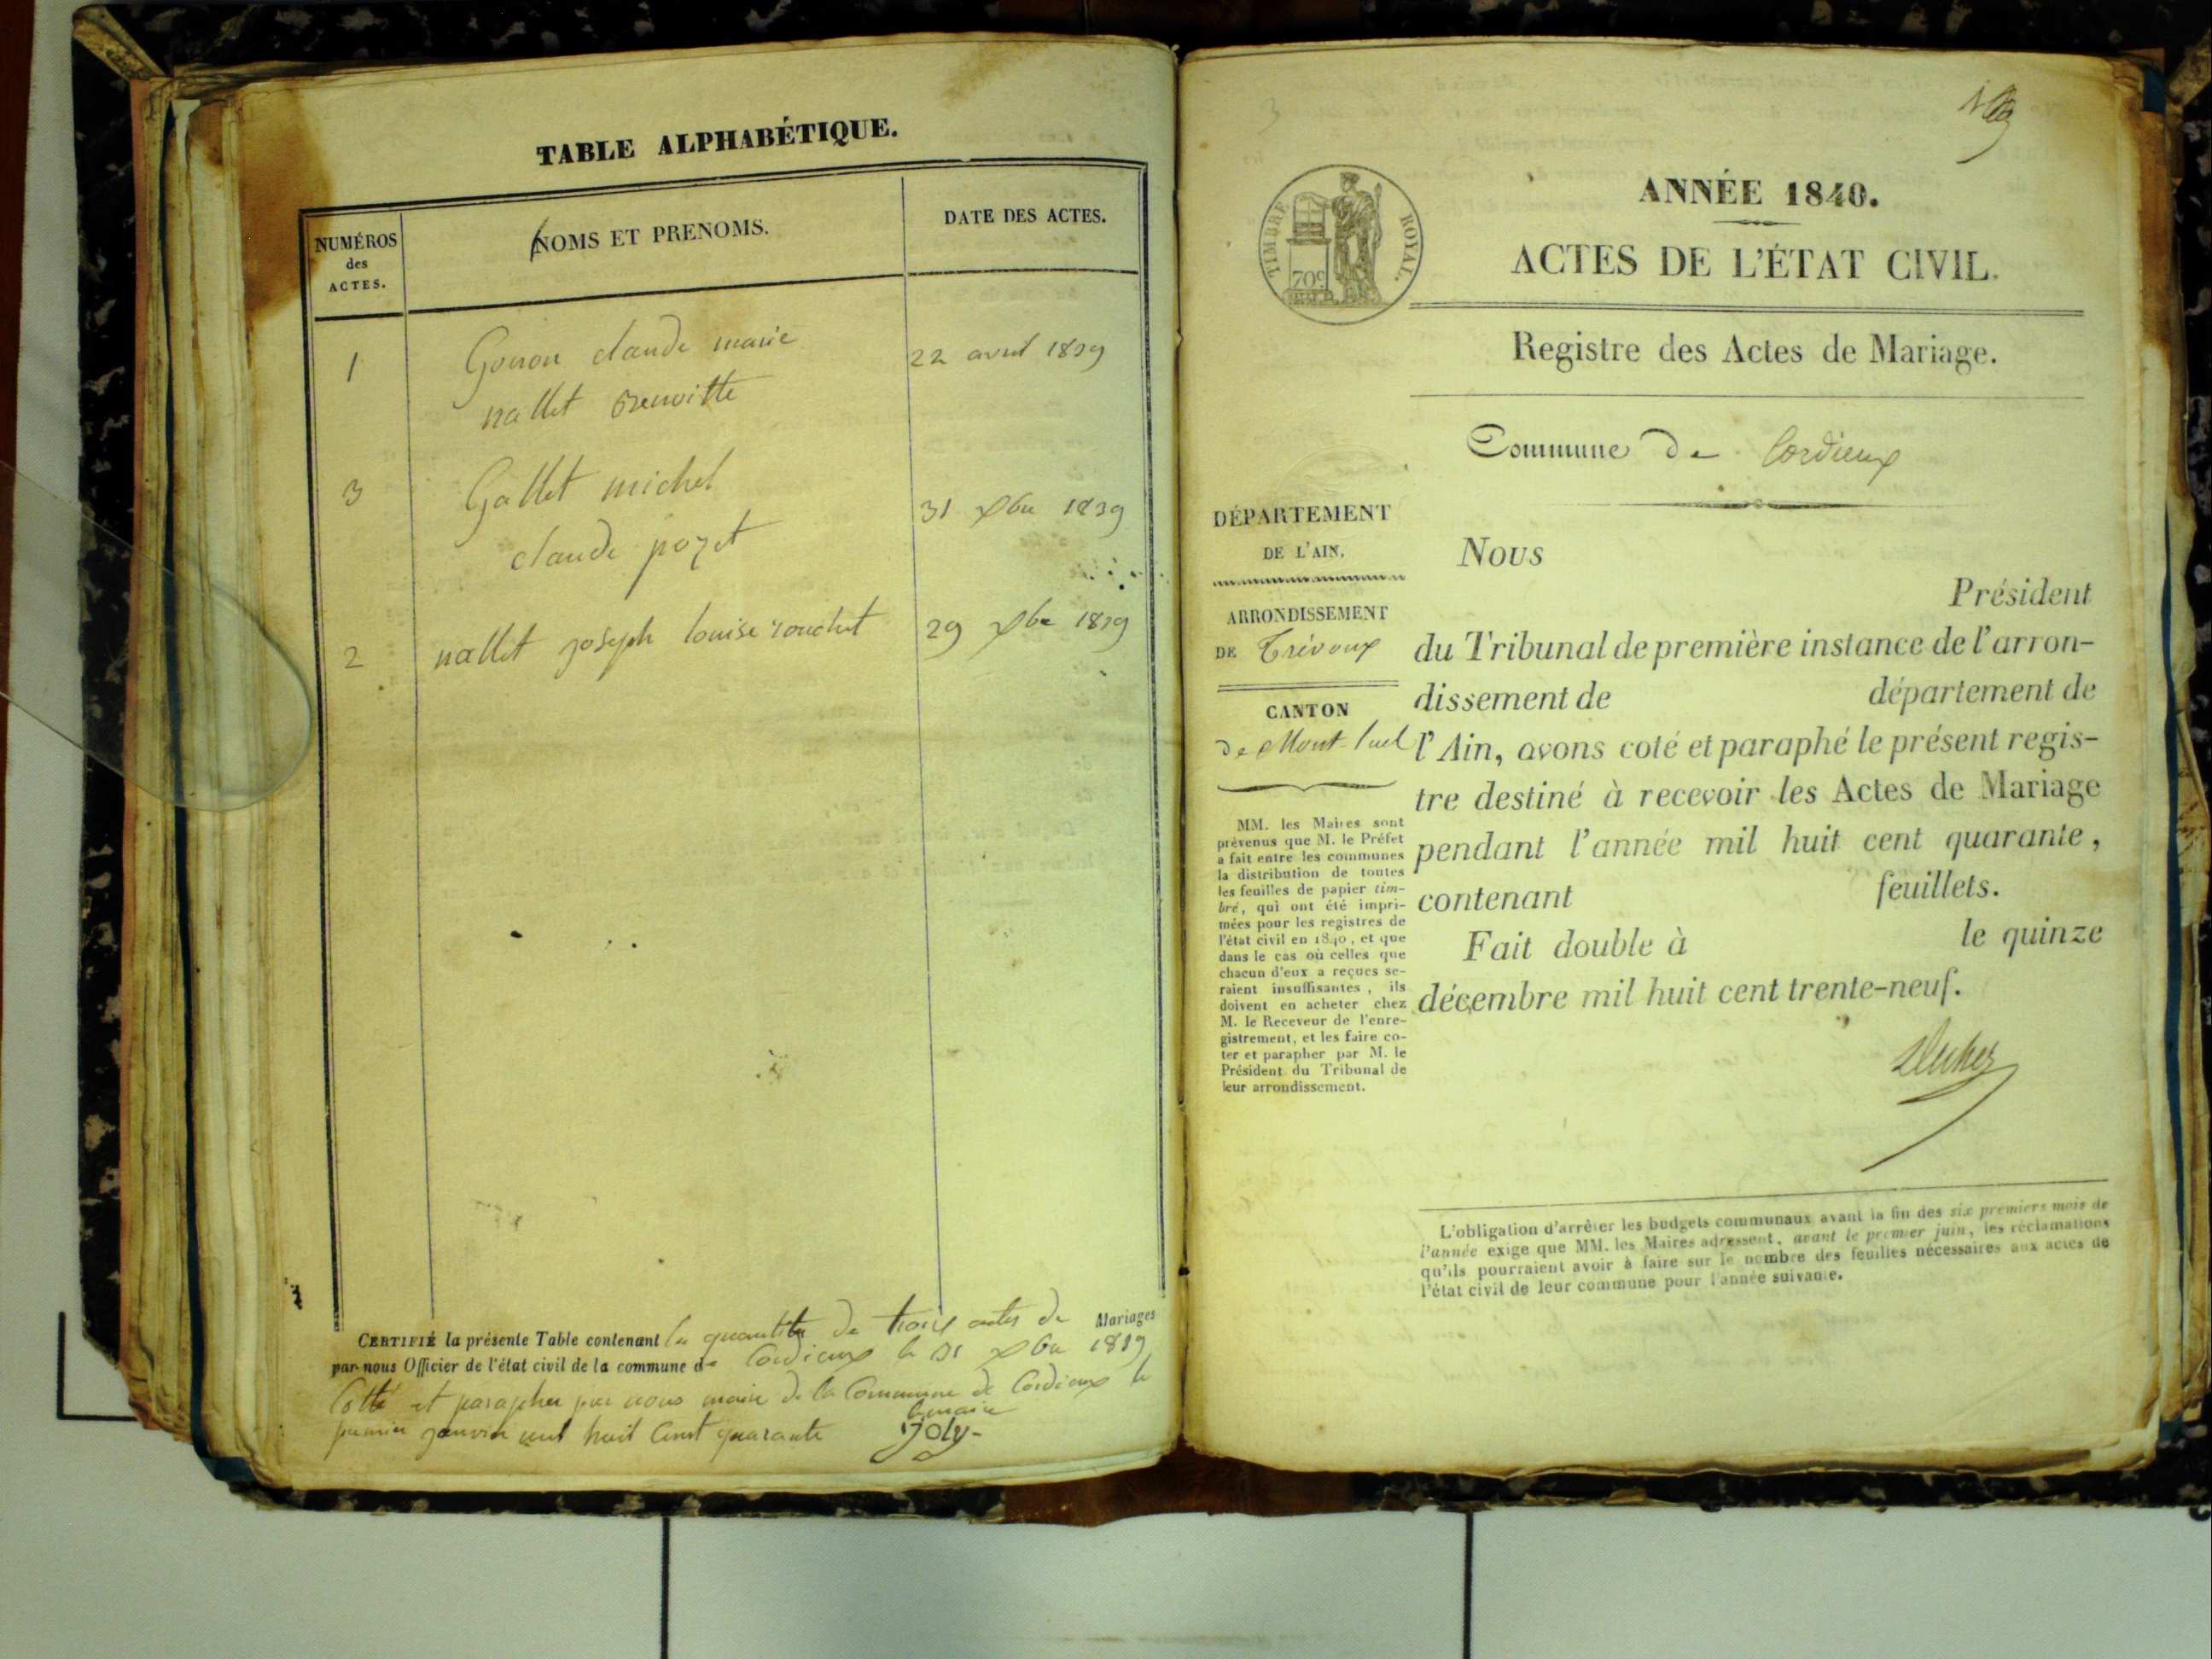 TABLE ALPHABÉTIQUE.
NUMÉROS
des
ACTES.
NOMS ET PRENOMS.
DATE DES ACTES.
1
Gonon claude marie
22 avril 1839
nallet
3
Gallet michel
31 xbre 1839
claude pozet
2
nallet joseph louise rouchet
29 xbre 1839
CERTIFIÉ la présente Table contenant la quantité de trois actes de Mariages
par nous Officier de l'état civil de la commune de Cordieux le 31 xbre 1839
Cotté et parapher par nous maire de la Commune de Cordieux le
premier janvier mil huit Cent quarante
le maire
Joly
3
TIMBRE ROYAL.
70c
ANNÉE 1840.
ACTES DE L'ÉTAT CIVIL.
Registre des Actes de Mariage.
Commune de Cordieux
DÉPARTEMENT
DE L'AIN.
ARRONDISSEMENT
DE Trévoux
CANTON
de Mont-luel
MM. les Maires sont
prévenus que M. le Préfet
a fait entre les communes
la distribution de toutes
les feuilles de papier tim-
bré, qui ont été impri-
mées pour les registres de
l'état civil en 1840, et que
dans le cas où celles que
chacun d'eux a reçues se-
raient insuffisantes, ils
doivent en acheter chez
M. le Receveur de l'enre-
gistrement, et les faire co-
ter et parapher par M. le
Président du Tribunal de
leur arrondissement.
Nous
Président
du Tribunal de première instance de l'arron-
dissement de département de
l'Ain, avons coté et paraphé le présent regis-
tre destiné à recevoir les Actes de Mariage
pendant l'année mil huit cent quarante,
contenant feuillets.
Fait double à le quinze
décembre mil huit cent trente-neuf.
L'obligation d'arrêter les budgets communaux avant la fin des six premiers mois de
l'année exige que MM. les Maires adressent, avant le premier juin, les réclamations
qu'ils pourraient avoir à faire sur le nombre des feuilles nécessaires aux actes de
l'état civil de leur commune pour l'année suivante.